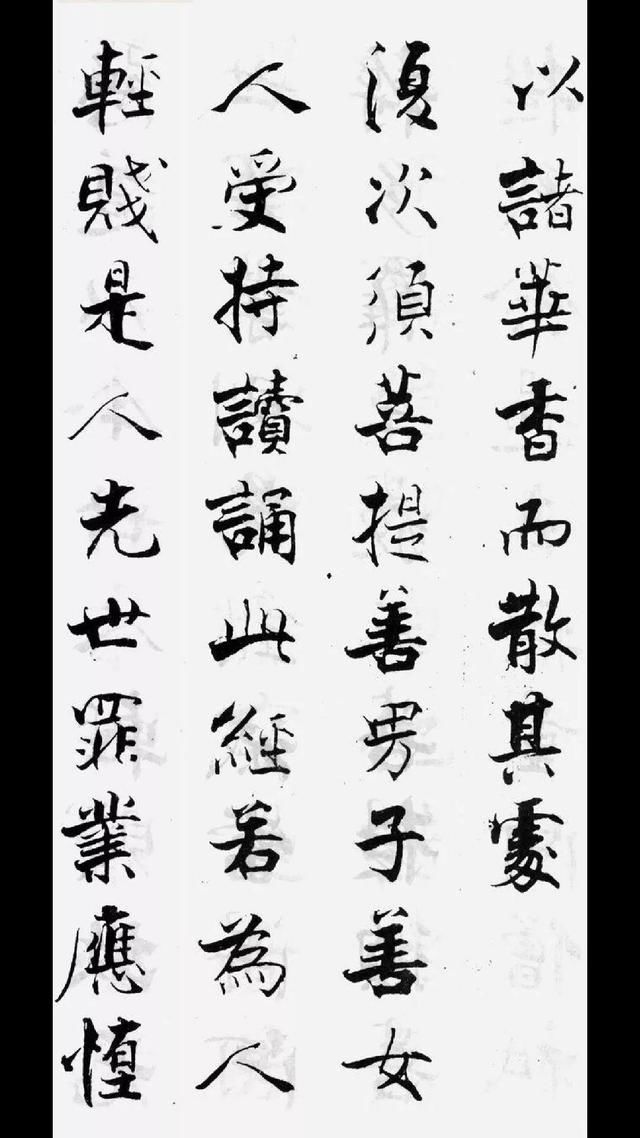 以諸華香而散其處
復次須菩提善男子善女
人受持讀誦此經若為人
輕賤是人先世罪業應墮